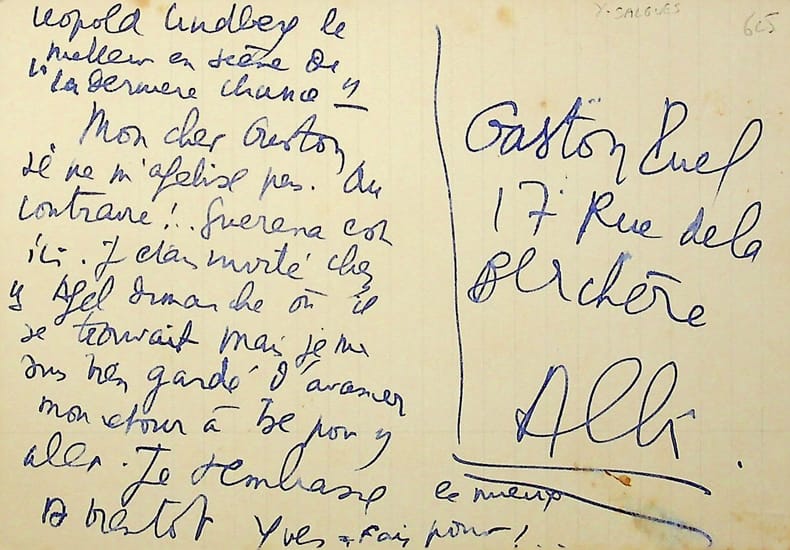 Leopold Lindberg le
metteur en scène de
"la dernière chance"
Mon cher Gaston
je ne m'agelise pas. Au
contraire!.. Guerena est
ici. J'étais invité chez
Y Agel dimanche où il
se trouvait mais je me
suis bien gardé d'avancer
mon retour à Tse pour y
aller. Je t'embrasse
A bientôt Yves = Fais pour
le mieux!...
Y. SALGUES
625
Gaston Ruel
17 Rue de la
Berchère
Albi.